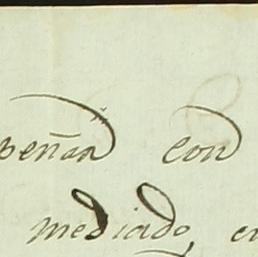 peñan con
mediado, en